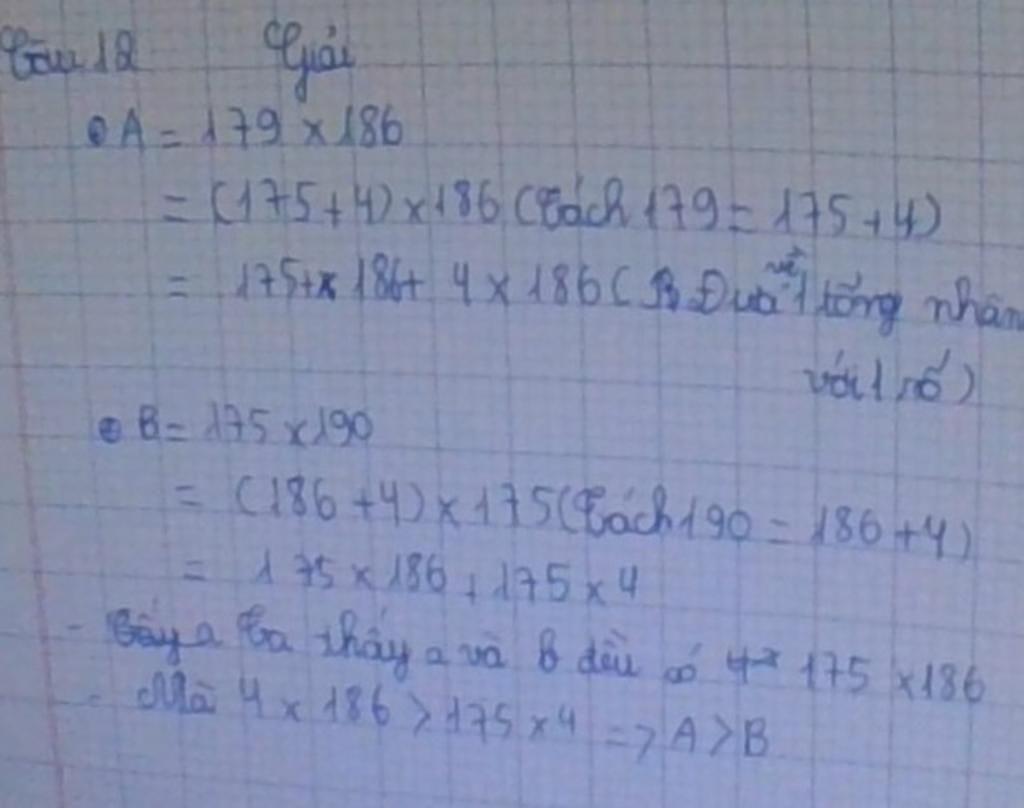 Câu 12 Giải
A = 179 x 186
= (175+4) x 186 (Tách 179 = 175+4)
= 175 x 186 + 4 x 186 (Đưa về 1 tổng nhân
với 1 số)
B = 175 x 190
= (186 + 4) x 175 (Tách 190 = 186 + 4)
= 175 x 186 + 175 x 4
- Ta thấy a và b đều có 175 x 186
- Mà 4 x 186 > 175 x 4 => A > B